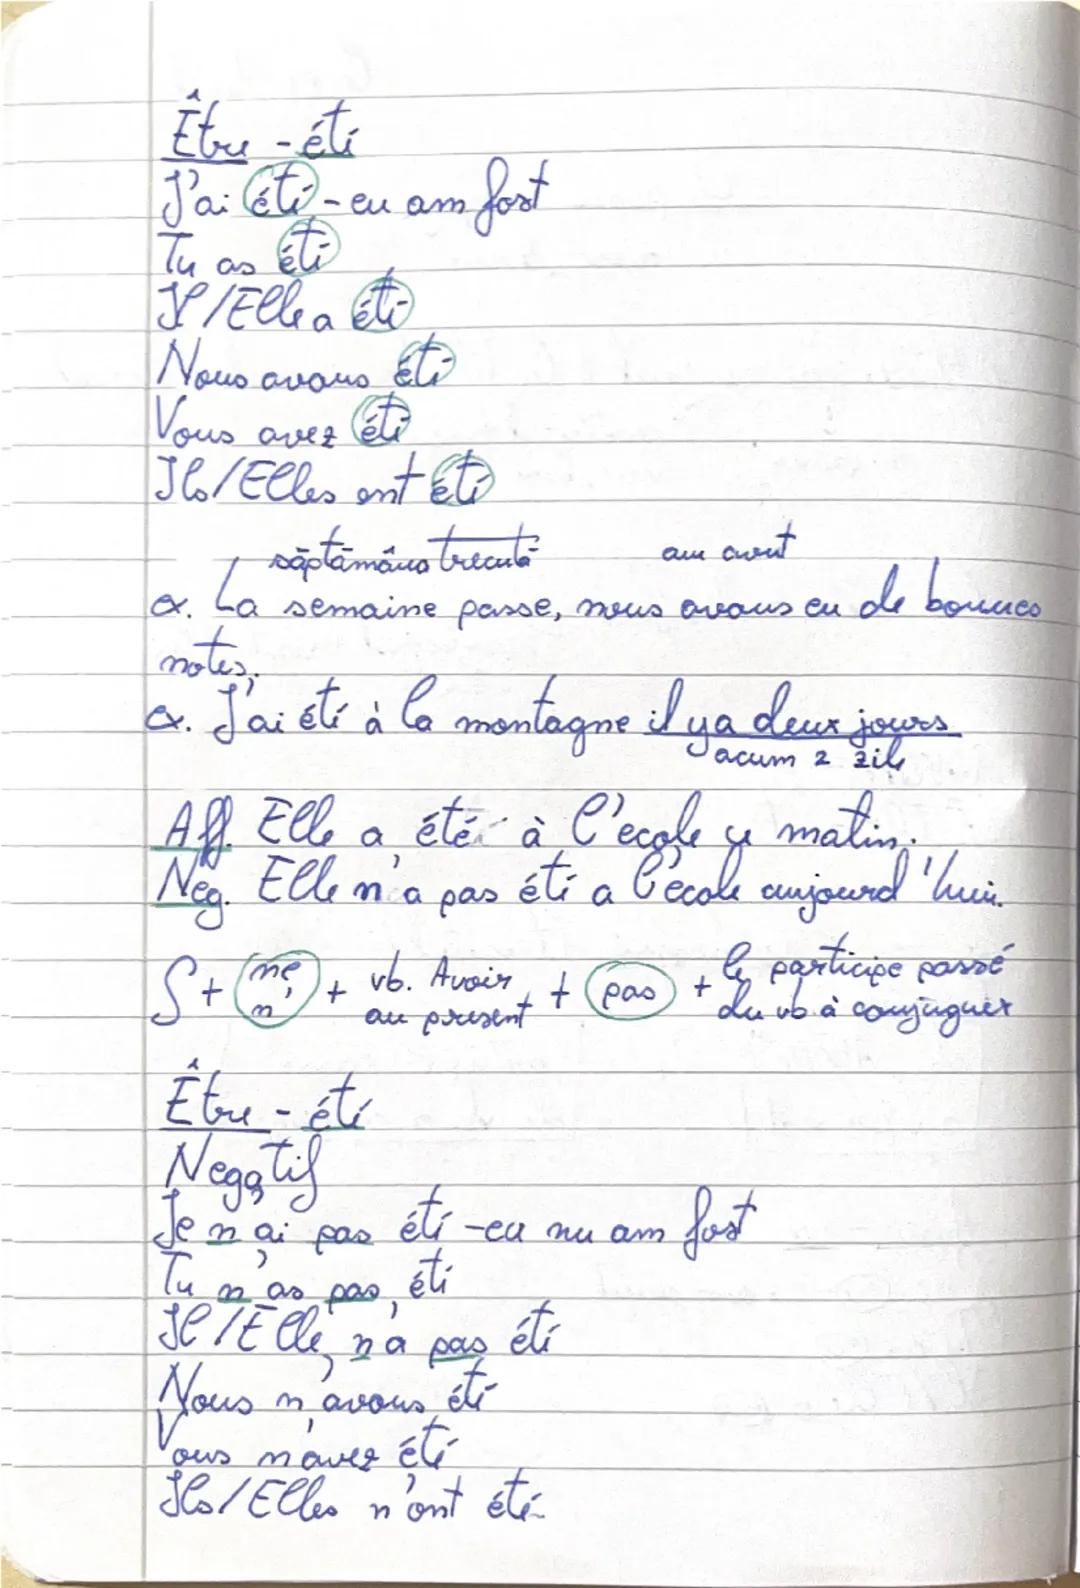 Être - été
J'ai été - eu am fost
Tu as été
Il/Elle a été
Nous avons été
Vous avez été
Ils/Elles ont été
săptămâna trecută am avut
ex. La semaine passe, nous avons eu de bonnes
notes.
ex. J'ai été à la montagne il y a deux jours
acum 2 zile
Aff. Elle a été à l'ecole ce matin.
Neg. Elle n'a pas été a l'école aujourd'hui.
S + ne n' + vb. Avoir au present + pas + le participe passé du vb à conjuguer
Être - été
Negatif
Je n'ai pas été - eu nu am fost
Tu n'as pas été
Il/Elle n'a pas été
Nous n'avons été
Vous n'avez été
Ils/Elles n'ont été